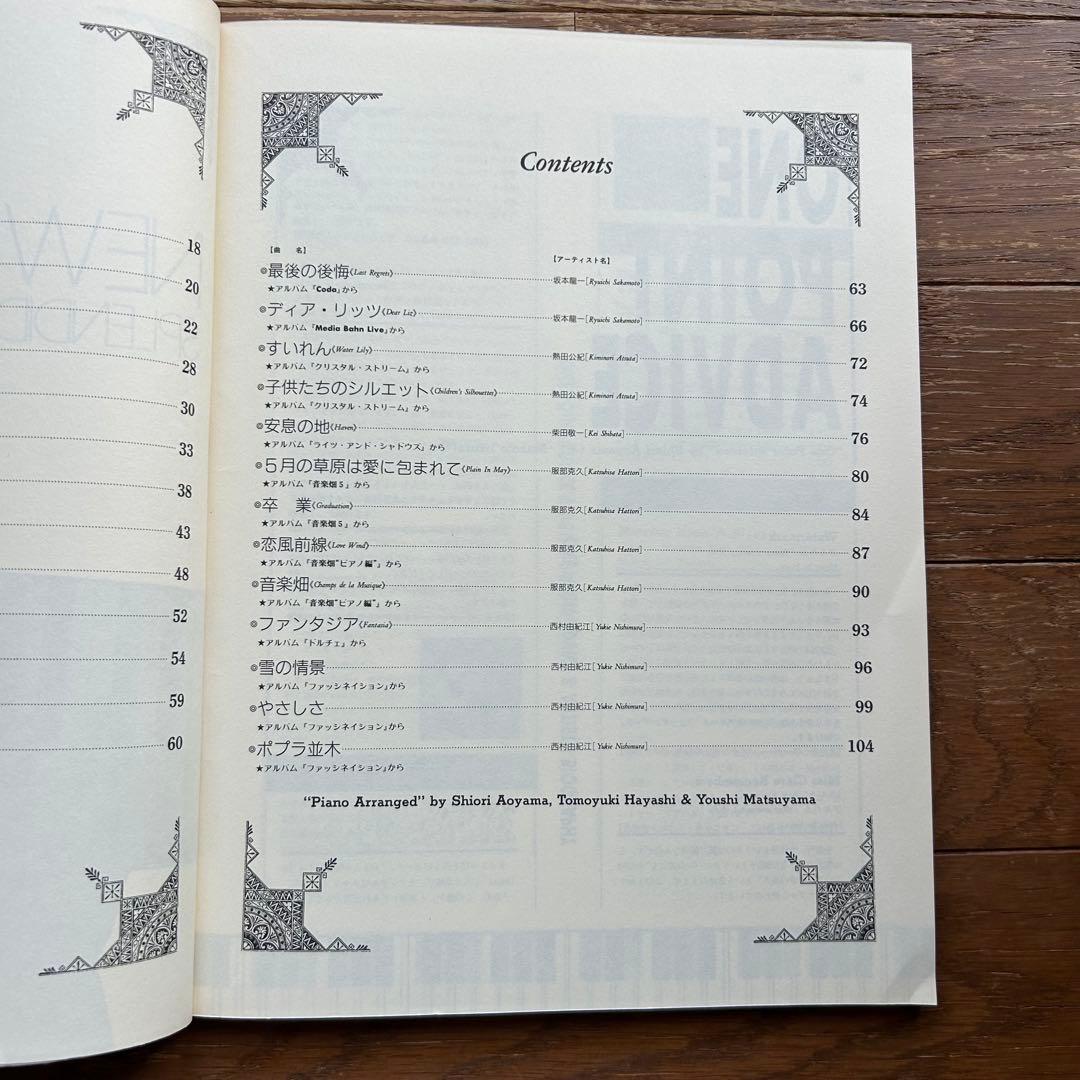 18
20
22
28
30
33
38
43
48
52
54
59
60
Contents
【曲 名】 【アーティスト名】
◎最後の後悔《Last Regrets》 坂本龍一[Ryuichi Sakamoto] 63
★アルバム『Coda』から
◎ディア・リッツ《Dear Liz》 坂本龍一[Ryuichi Sakamoto] 66
★アルバム『Media Bahn Live』から
◎すいれん《Water Lily》 熱田公紀[Kiminori Atsuta] 72
★アルバム『クリスタル・ストリーム』から
◎子供たちのシルエット《Children's Silhouettes》 熱田公紀[Kiminori Atsuta] 74
★アルバム『クリスタル・ストリーム』から
◎安息の地《Haven》 柴田敬一[Kei Shibata] 76
★アルバム『ライツ・アンド・シャドウズ』から
◎5月の草原は愛に包まれて《Plain In May》 服部克久[Katsuhisa Hattori] 80
★アルバム『音楽畑5』から
◎卒 業《Graduation》 服部克久[Katsuhisa Hattori] 84
★アルバム『音楽畑5』から
◎恋風前線《Love Wind》 服部克久[Katsuhisa Hattori] 87
★アルバム『音楽畑"ピアノ編"』から
◎音楽畑《Champs de la Musique》 服部克久[Katsuhisa Hattori] 90
★アルバム『音楽畑"ピアノ編"』から
◎ファンタジア《Fantasia》 西村由紀江[Yukie Nishimura] 93
★アルバム『ドルチェ』から
◎雪の情景 西村由紀江[Yukie Nishimura] 96
★アルバム『ファッシネイション』から
◎やさしさ 西村由紀江[Yukie Nishimura] 99
★アルバム『ファッシネイション』から
◎ポプラ並木 西村由紀江[Yukie Nishimura] 104
★アルバム『ファッシネイション』から
"Piano Arranged" by Shiori Aoyama, Tomoyuki Hayashi & Youshi Matsuyama